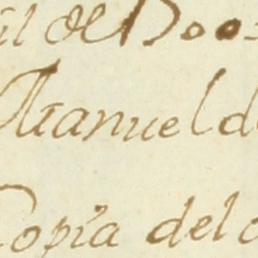 il de Dos
Manuel d
Copia del